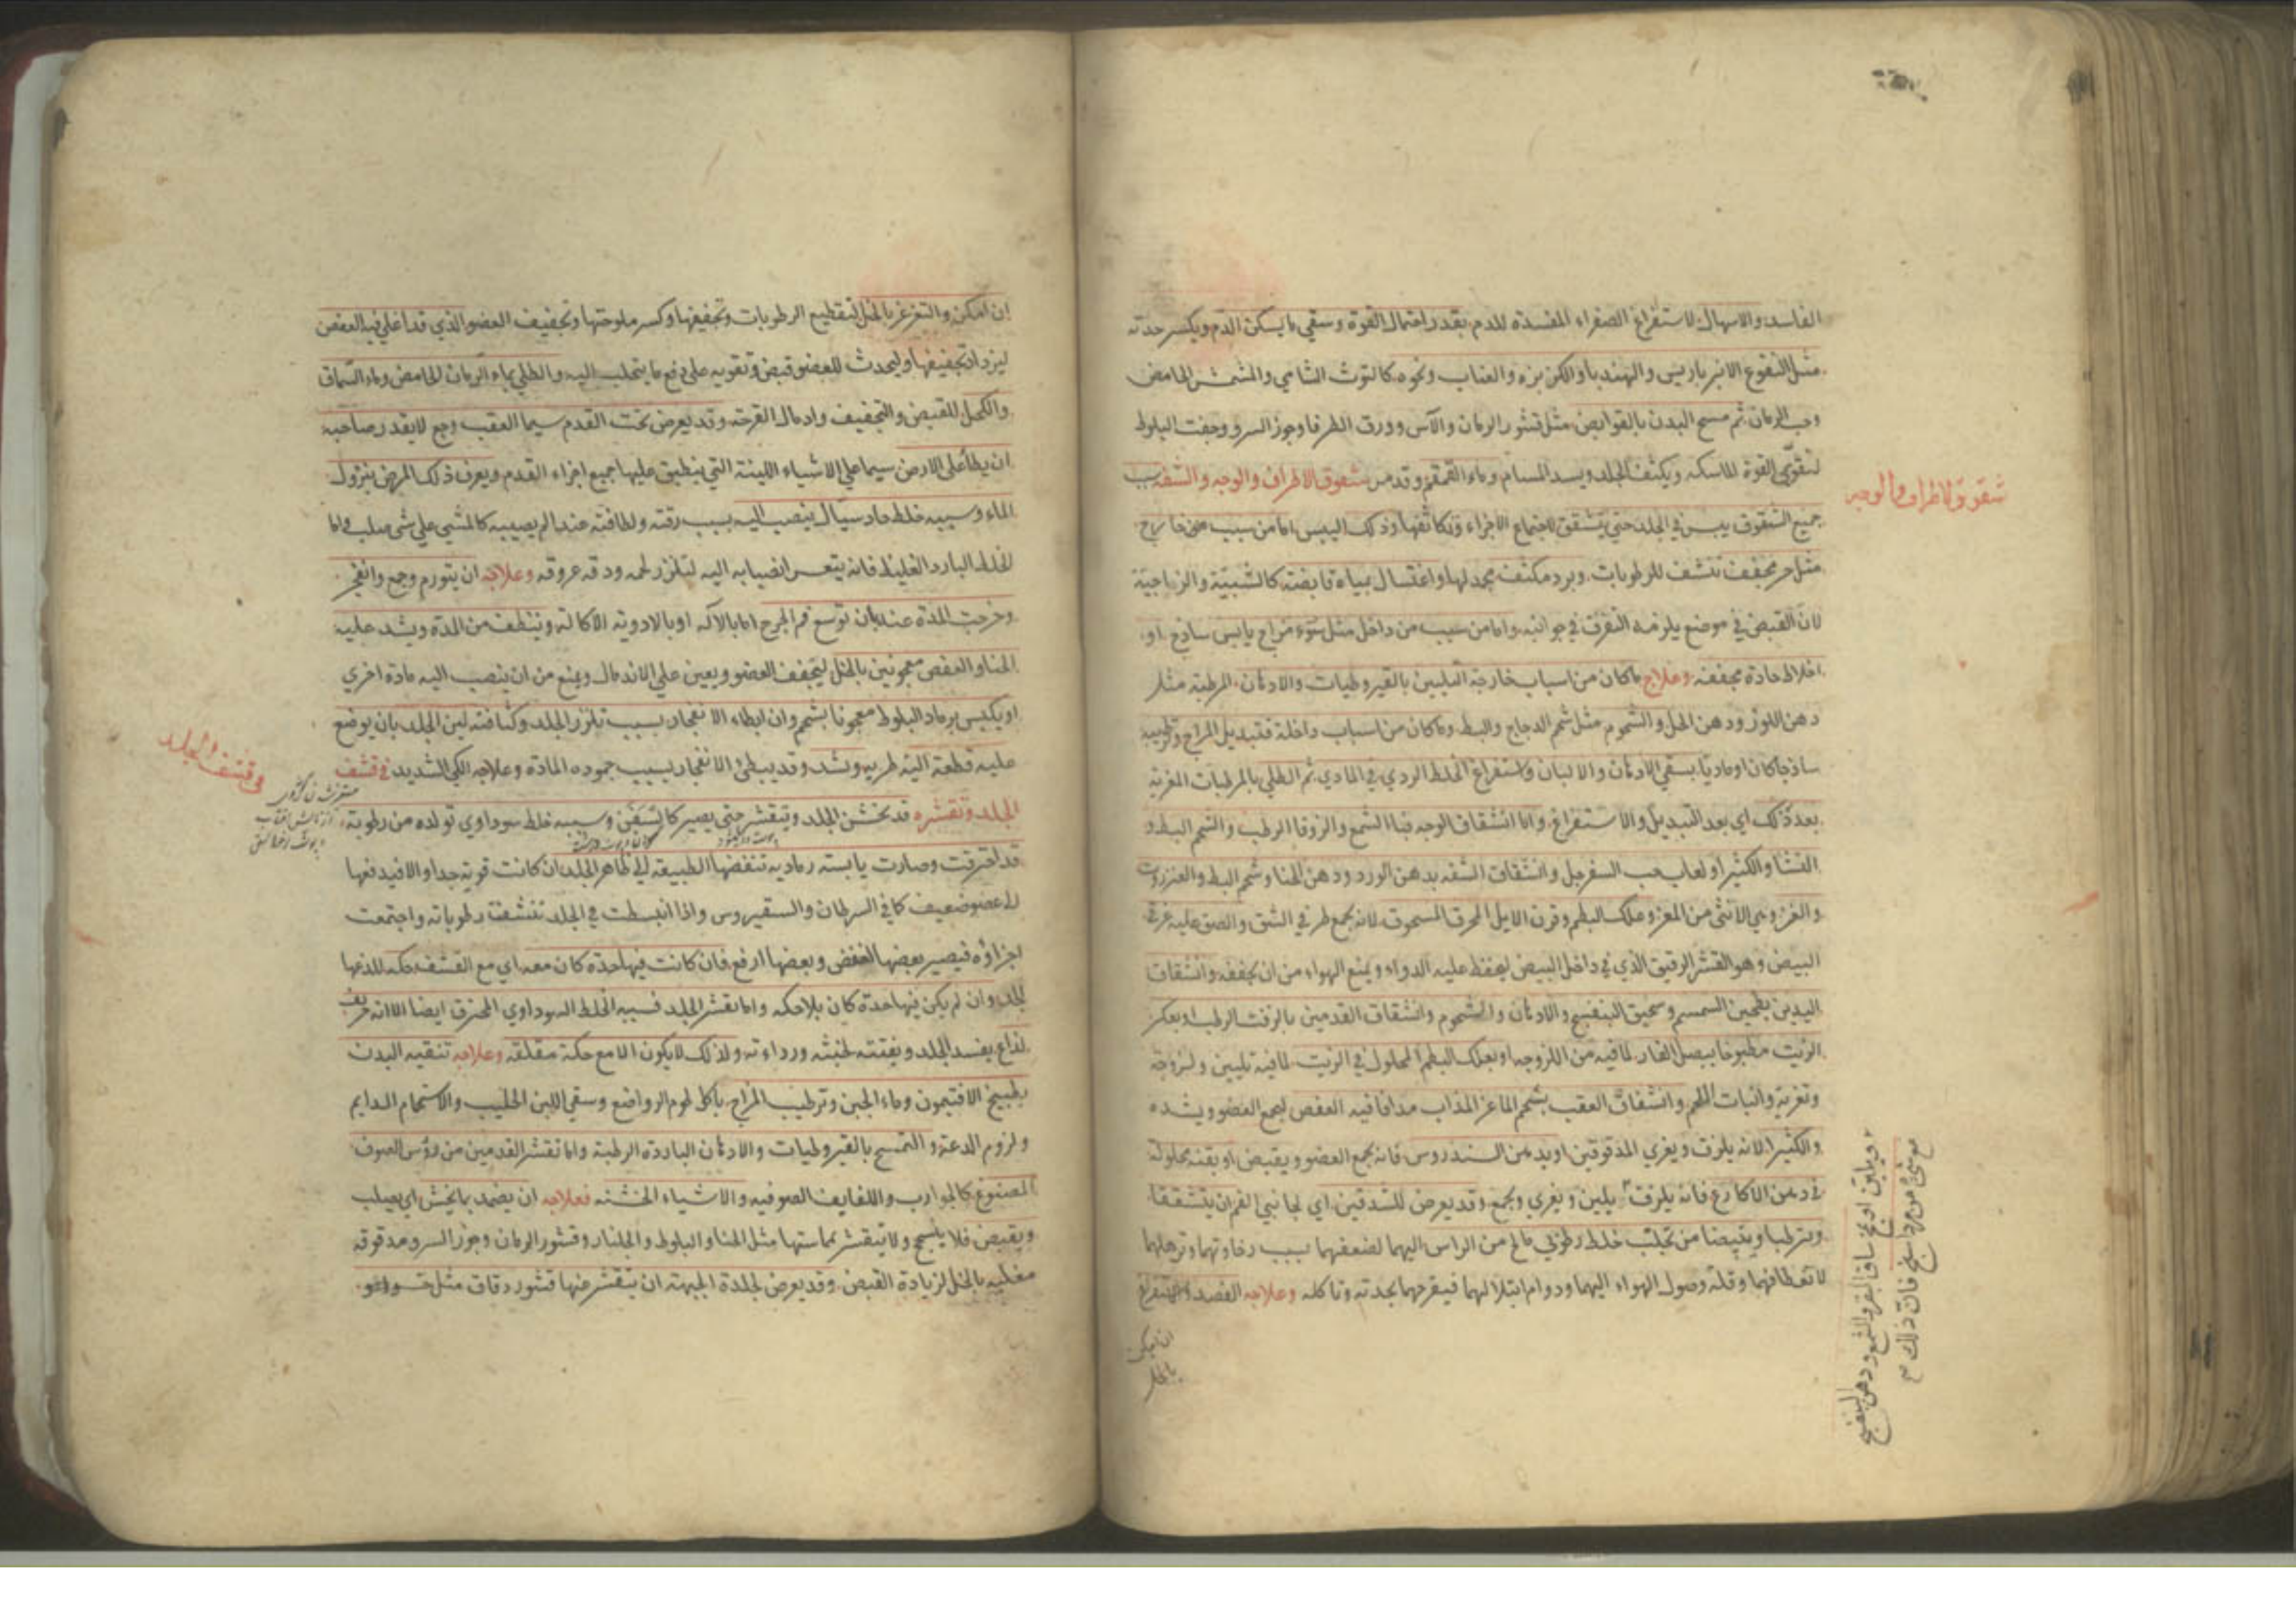 الفاسد والاسهال لاستفراغ الصفراء المفسدة للدم بقدر احتمال القوة وسقي ما يسكن الدم ويكسر حدته
مثل النقوع الانبرباريس والهندبا والكزبزه والعناب ونحوه كالتوث الشامي والمشمش الحامض
وحب الرمان ثم مسح البدن بالقوابض مثل قشور الرمان والآس وورق الطرفا وجوز السرو وجفت البلوط
لتقوي القوة الماسكه ويكثف الجلد ويسد المسام وماء القمقم وقد مر شقوق الاطراف والوجه والشفه سبب
شقوق الاطراف والوجه
جميع الشقوق يبس في الجلد حتى يتشقق لاجتماع الاجزاء وتكاثفها وذلك اليبس اما من سبب من خارج
مثل حر مجفف تنشف للرطوبات وبرد مكثف مجمد لها او اغتسال بمياه قابضة كالشبيّة والزاجيّة
لان القبض في موضع يلزمه التفرق في جوانبه واما من سبب من داخل مثل سوء مزاج يابس ساذج او
اخلاط حادة مجففه وعلاج ما كان من اسباب خارجة التليين بالقيروطيات والادهان المرطبة مثل
دهن اللوز ودهن الحل والشحوم مثل شحم الدجاج والبط وما كان من اسباب داخلة فتبديل المزاج وترطيبه
ساذجا كان او ماديا بسقي الادهان والالبان واستفراغ الخلط الردي في المادي ثم الطلي بالمرطبات المغرية
بعد ذلك اي بعد التبديل والاستفراغ واما انشقاق الوجه فبالشمع والزوفا الرطب والشحم البط و
النشا والكثيرا ولعاب حب السفرجل وانشقاق الشفه بدهن الورد ودهن الحنا وشحم البط والعنزروت
والغز وهي الانثى من المعز وعلك البطم وقرن الايل المحرق المسحوق لانه يجمع طرفي الشق والصق عليه غرقئ
البيض وهو القشر الرقيق الذي في داخل البيض ليحفظ عليه الدواء ويمنع الهواء من ان يجففه وانشقاق
اليدين بطحين السمسم وسحيق البنفسج والادهان والشحوم وانشقاق القدمين بالزفت الرطب او بعكر
الزيت مطبوخا ببصل الفار لما فيه من اللزوجه او بعلك البطم المحلول في الزيت لما فيه تليين ولزوجة
وتغرية وانبات اللحم وانشقاق العقب بشحم الماعز المذاب مدافا فيه العفص ليجمع العضو ويشده
والكثيرا لانه يلزق ويغري المدقوقين او بدهن السندروس فانه يجمع العضو ويقبض او بقنه محلولة
في دهن الاكارع فانه يلزق يلين ويغري ويجمع وقد يعرض للشدقين اي لجانبي الفم ان يتشققا
ويترطبا ويتبيضا من تحلّب خلط رطوبي مالح من الراس اليهما لضعفهما بسبب رخاوتهما وترهلهما
لانعطافهما وقلة وصول الهواء اليهما ودوام ابتلالهما فيقرحهما بحدته وتاكله وعلاجه الفصد والاستفراغ
ان امكن
ويلين او بمخ ساق البقر والشمع ودهن البنفسج
فان ذلك
ان امكن والتغرغر بالخل لتقطيع الرطوبات وتجفيفها وكسر ملوحتها وتجفيف العضو الذي قد اغلي فيه العفص
ليزداد تجفيفها وليحدث للعضو قبض وتقوية على دفع ما يتحلب اليه والطلي بماء الرمان الحامض وماء السماق
والكحل للقبض والتجفيف وادمال القرحة وقد يعرض تحت القدم سيما العقب وجع لا يقدر صاحبه
ان يطأ على الارض سيما على الاشياء اللينة التي ينطبق عليها جميع اجزاء القدم ويعرف ذلك المرض بنزول
الماء وسببه خلط حاد سيال ينصب اليه بسبب رقته ولطافته عند الم يصيبه كالمشي على شئ صلب واما
الخلط البارد الغليظ فانه يتعسر انصبابه اليه لتلزز لحمه ودقه عروقه وعلاجه ان يتورم وجع وانفجر
وخرجت المدة عنه بان توسع فم الجرح اما بالاله او بالادوية الاكالة وينظف من المدة ويشد عليه
الحنا والعفص معجونين بالخل ليتجفف العضو ويعين على الاندمال ويمنع من ان ينصب اليه مادة اخري
او يكبس برماد البلوط معجونا بشحم وان ابطاء الانفجار بسبب تلزز الجلد وكثافته لين الجلد بان يوضع
عليه قطعة الية طريه وتشد وقد يبطئ الانفجار بسبب جموده المادة وعلاجه الكي الشديد في قشف
في قشف الجلد
الجلد وتقشره قد تخشن الجلد ويتقشر حتى يصير كالسفن وسببه خلط سوداوي تولده من رطوبة
قد احترقت وصارت يابسته رماديه تنفضها الطبيعة الى ظاهر الجلد ان كانت قوية جدا والا فيدفعها
الى عضو ضعيف كما في السرطان والسقيروس واذا انبسطت في الجلد نشفت رطوباته واجتمعت
اجزاؤه فيصير بعضها اخفض وبعضها ارفع فان كانت فيها حدة كان معه اي مع القشف حكه للذعها
الجلد وان لم يكن فيها حدة كان بلا حكه واما تقشر الجلد فسببه الخلط السوداوي المحترق ايضا الا انه حريف
لذاع يفسد الجلد ويفتته لخبثه ورداءته ولذلك لا يكون الا مع حكة مقلقه وعلاجه تنقيه البدن
بطبيخ الافتيمون وماء الجبن وترطيب المزاج باكل لحوم الرواضع وسقي اللبن الحليب والاستحمام الدايم
ولزوم الدعة والتمسح بالقيروطيات والادهان الباردة الرطبة واما تقشر القدمين من رؤس الصوف
المصبوغ كالجوارب واللفايف الصوفيه والاشياء الخشنه فعلاجه ان يضمد بما يخشن اي يصلب
ويقبض فلا ينسحج ولا يتقشر بماستها مثل الحنا والبلوط والجلنار وقشور الرمان وجوز السرو مدقوقه
مغليه بالخل لزيادة القبض وقد يعرض لجلدة الجبهة ان يتقشر عنها قشور دقاق مثل